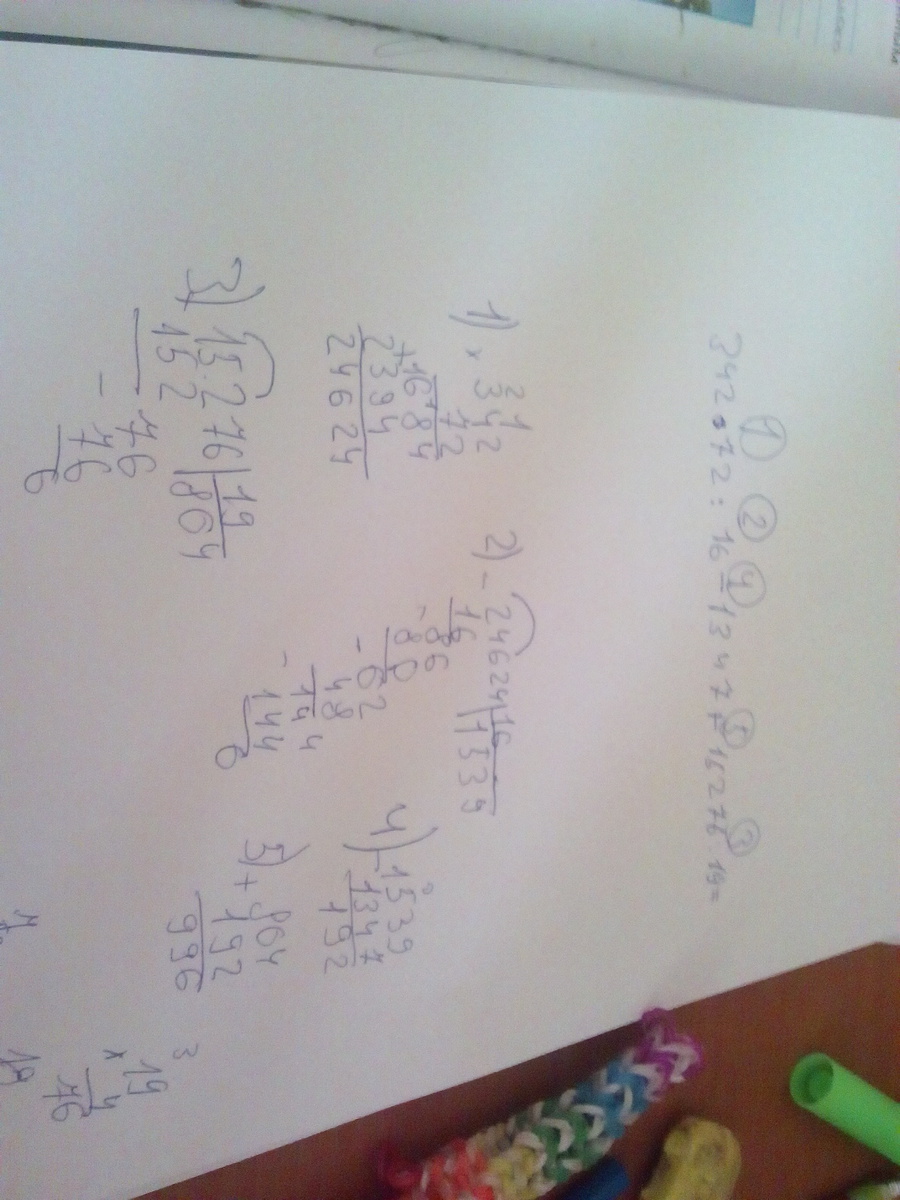 342 • 72 : 16 - 13 47 + 16276 : 19 =
1 2 4 5 3
1) × 342
72
+ 684
2394
24624
2) - 24624 | 16
16 | 1539
- 86
80
- 62
48
- 144
144
0
3) 15276 | 19
152 | 864
- 76
76
0
4) - 1539
1347
192
5) + 864
192
996
3
× 19
4
76